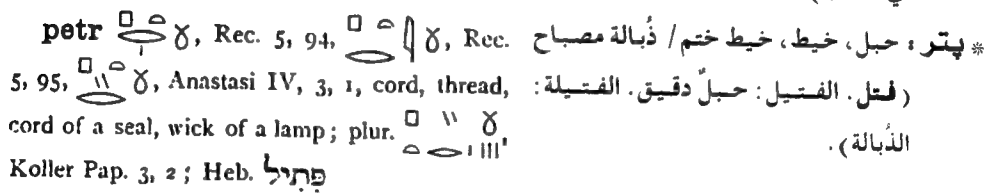 petr 𓊪𓏏𓂋𓏤𓍢, Rec. 5, 94, 𓊪𓏏𓂋𓇋𓍢, Rec.
5, 95, 𓊪𓏏𓏭𓂋𓍢, Anastasi IV, 3, 1, cord, thread,
cord of a seal, wick of a lamp; plur. 𓊪𓏏𓏭𓂋𓏤𓍢𓏥,
Koller Pap. 3, 2; Heb. פְּתִיל
* پتر : حبل، خيط، خيط ختم / ذُبالة مصباح
( فتل. الفتيل: حبلٌ دقيق. الفتيلة:
الذُبالة).